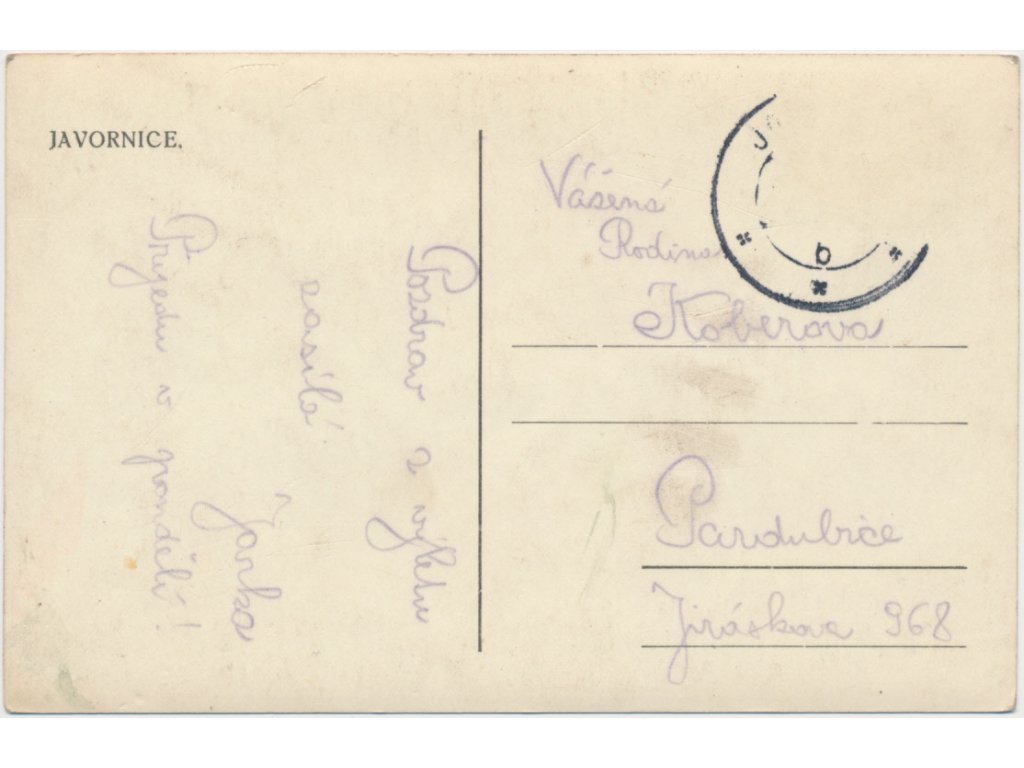 JAVORNICE.
Pozdrav z výletu
posílá
Jarka
Přijedu v pondělí!
Vážená
Rodina
Koberova
Pardubice
Jiráskova 968
b